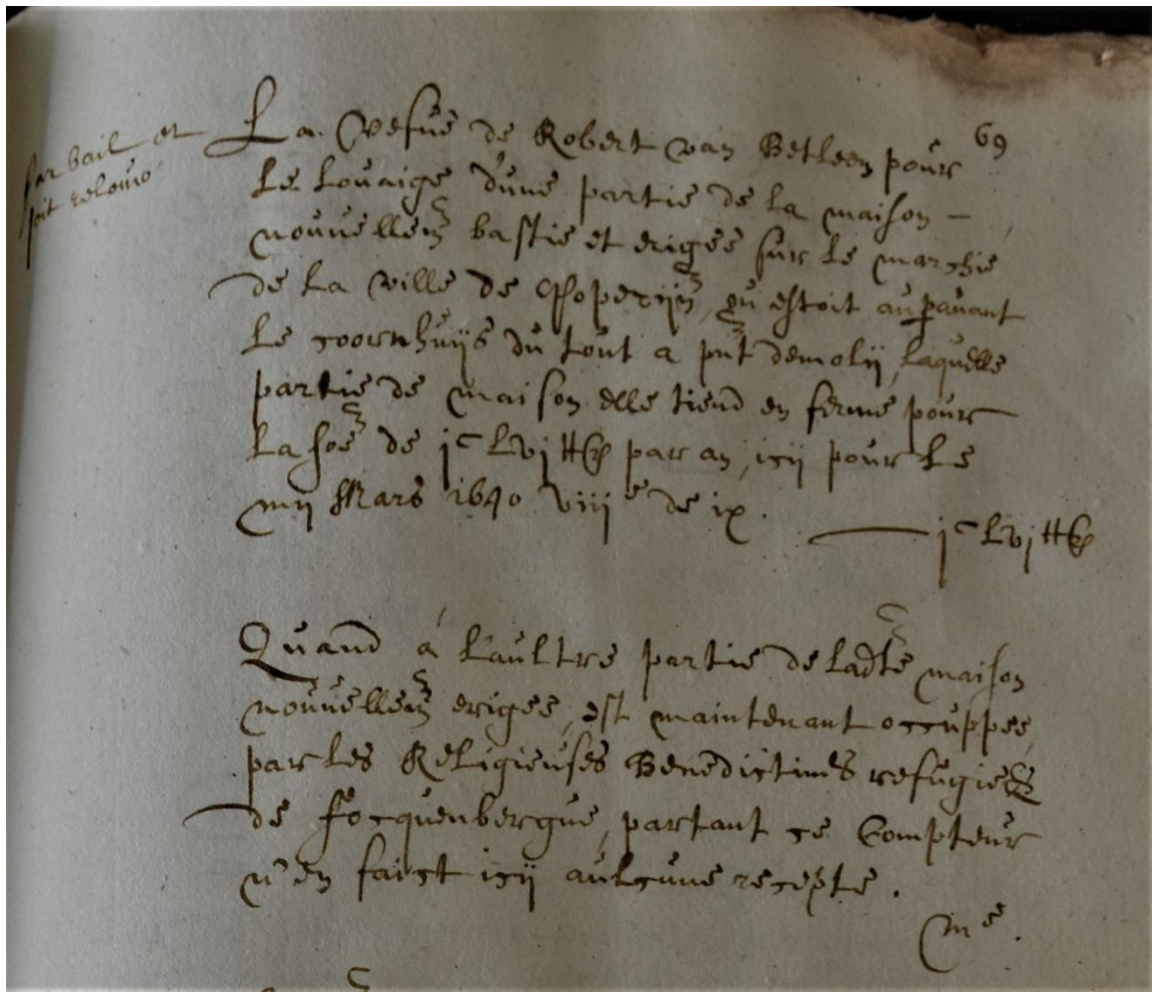 69
par bail et
soit relouvé
La Vefue de Robert van Betleem pour
Le Louaige d'une partie de la maison -
nouuellem̃ bastie et erigee sur le marchie
de la Ville de Poperijn̄, qu'estoit aup̲auant
Le coornhuijs du tout a pn̄t demolij, Laquelle
partie de maison elle tiend en ferme pour
La soē de jᶜ Lvj tt p par an, icij pour Le
mij Mars 1640 viijᵉ de ix.
jᶜ Lvj tt p
Quand á L'aultre partie de ladtē maison
nouuellem̃ erigee, est maintenant occuppee,
par les Religieuses Benedictines refugieēs
de focquenbergue, partant ce Compteur
n'en faict icij aulcune recepte.
mᵉ.